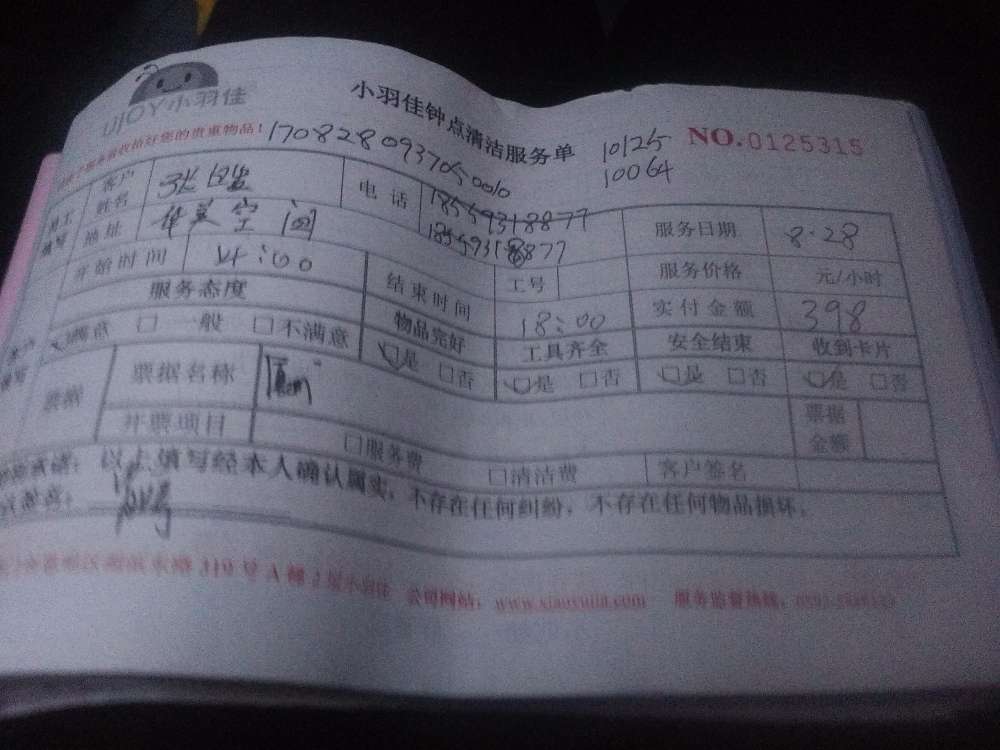 UJOY小羽佳
小羽佳钟点清洁服务单
10125
10064
NO.0125315
收拾好您的贵重物品！
客户姓名
电话
18559318877
18559318877
服务日期
8.28
地址
华英空间
开始时间
14:00
结束时间
18:00
工号
服务价格
元/小时
服务态度
物品完好
工具齐全
实付金额
398
安全结束
收到卡片
满意 □一般 □不满意
是 □否
是 □否
是 □否
是 □否
票据
票据名称
票据金额
开票项目
□服务费
□清洁费
客户签名
以上填写经本人确认属实，不存在任何纠纷，不存在任何物品损坏。
319号A幢2层小羽佳
公司网站：www.xiaoyujia.com
服务监督热线：